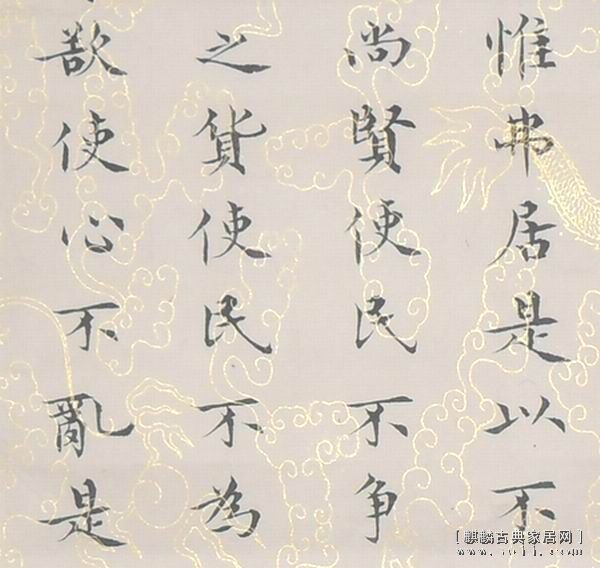 惟弗居是以不
尚賢使民不争
之貨使民不為
欲使心不亂是
[麒麟古典家居网]